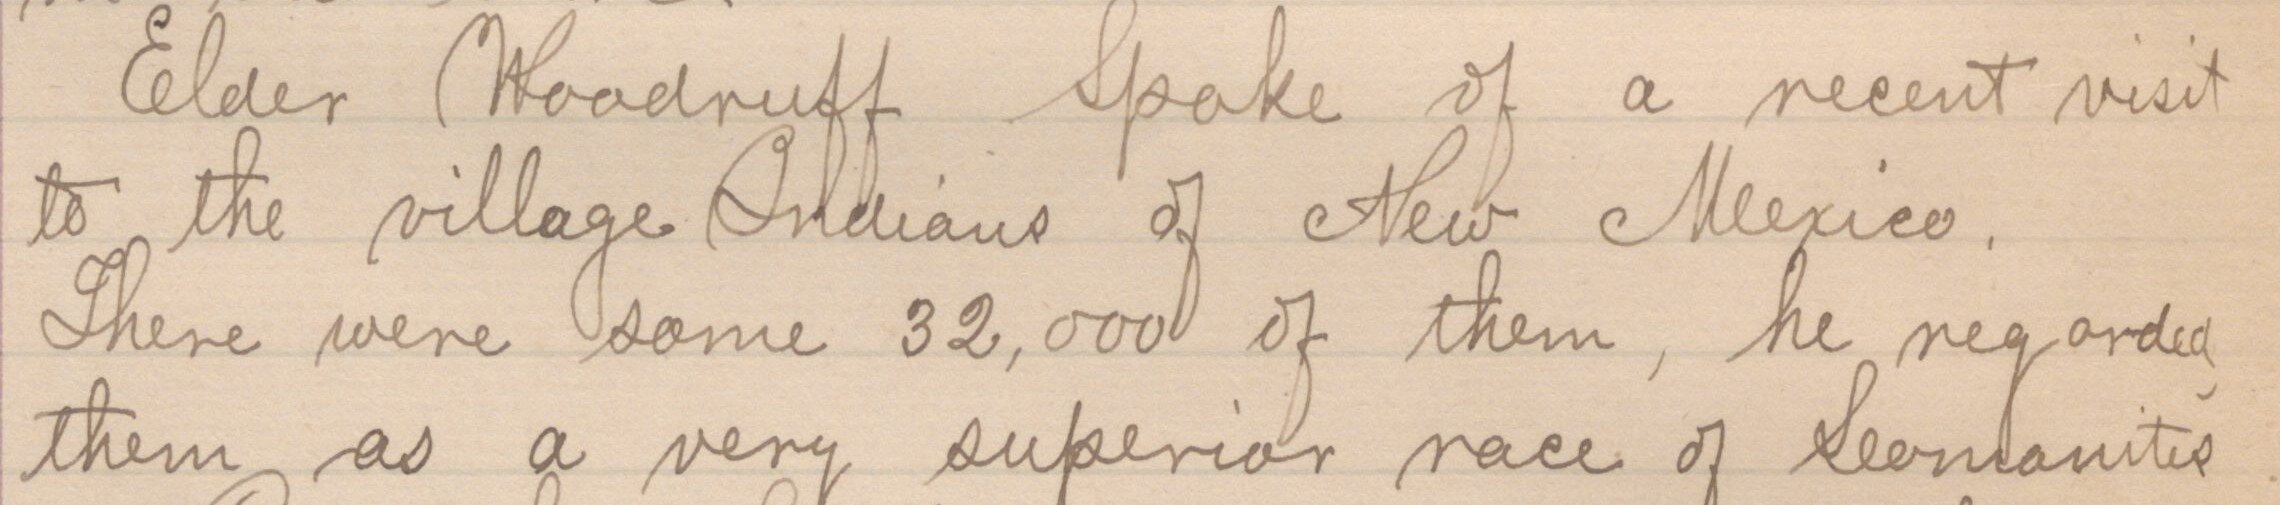 Elder Woodruff Spoke of a recent visit
to the village Indians of New Mexico.
There were some 32,000 of them, he regarded
them as a very superior race of